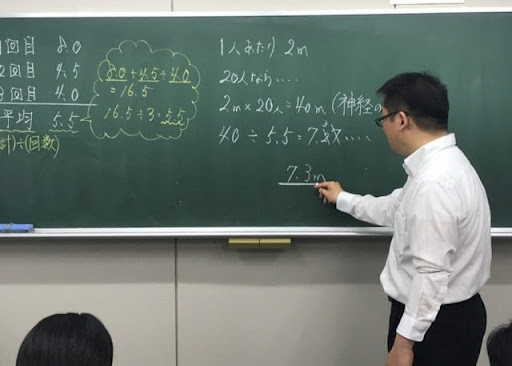 1回目 8.0
2回目 4.5
3回目 4.0
平均 5.5
計)÷(回数)
8.0+4.5+4.0
=16.5
16.5÷3=5.5
1人あたり 2m
20人なら‥‥
2m×20人=40m (神経の
40÷5.5=7.
7.3m